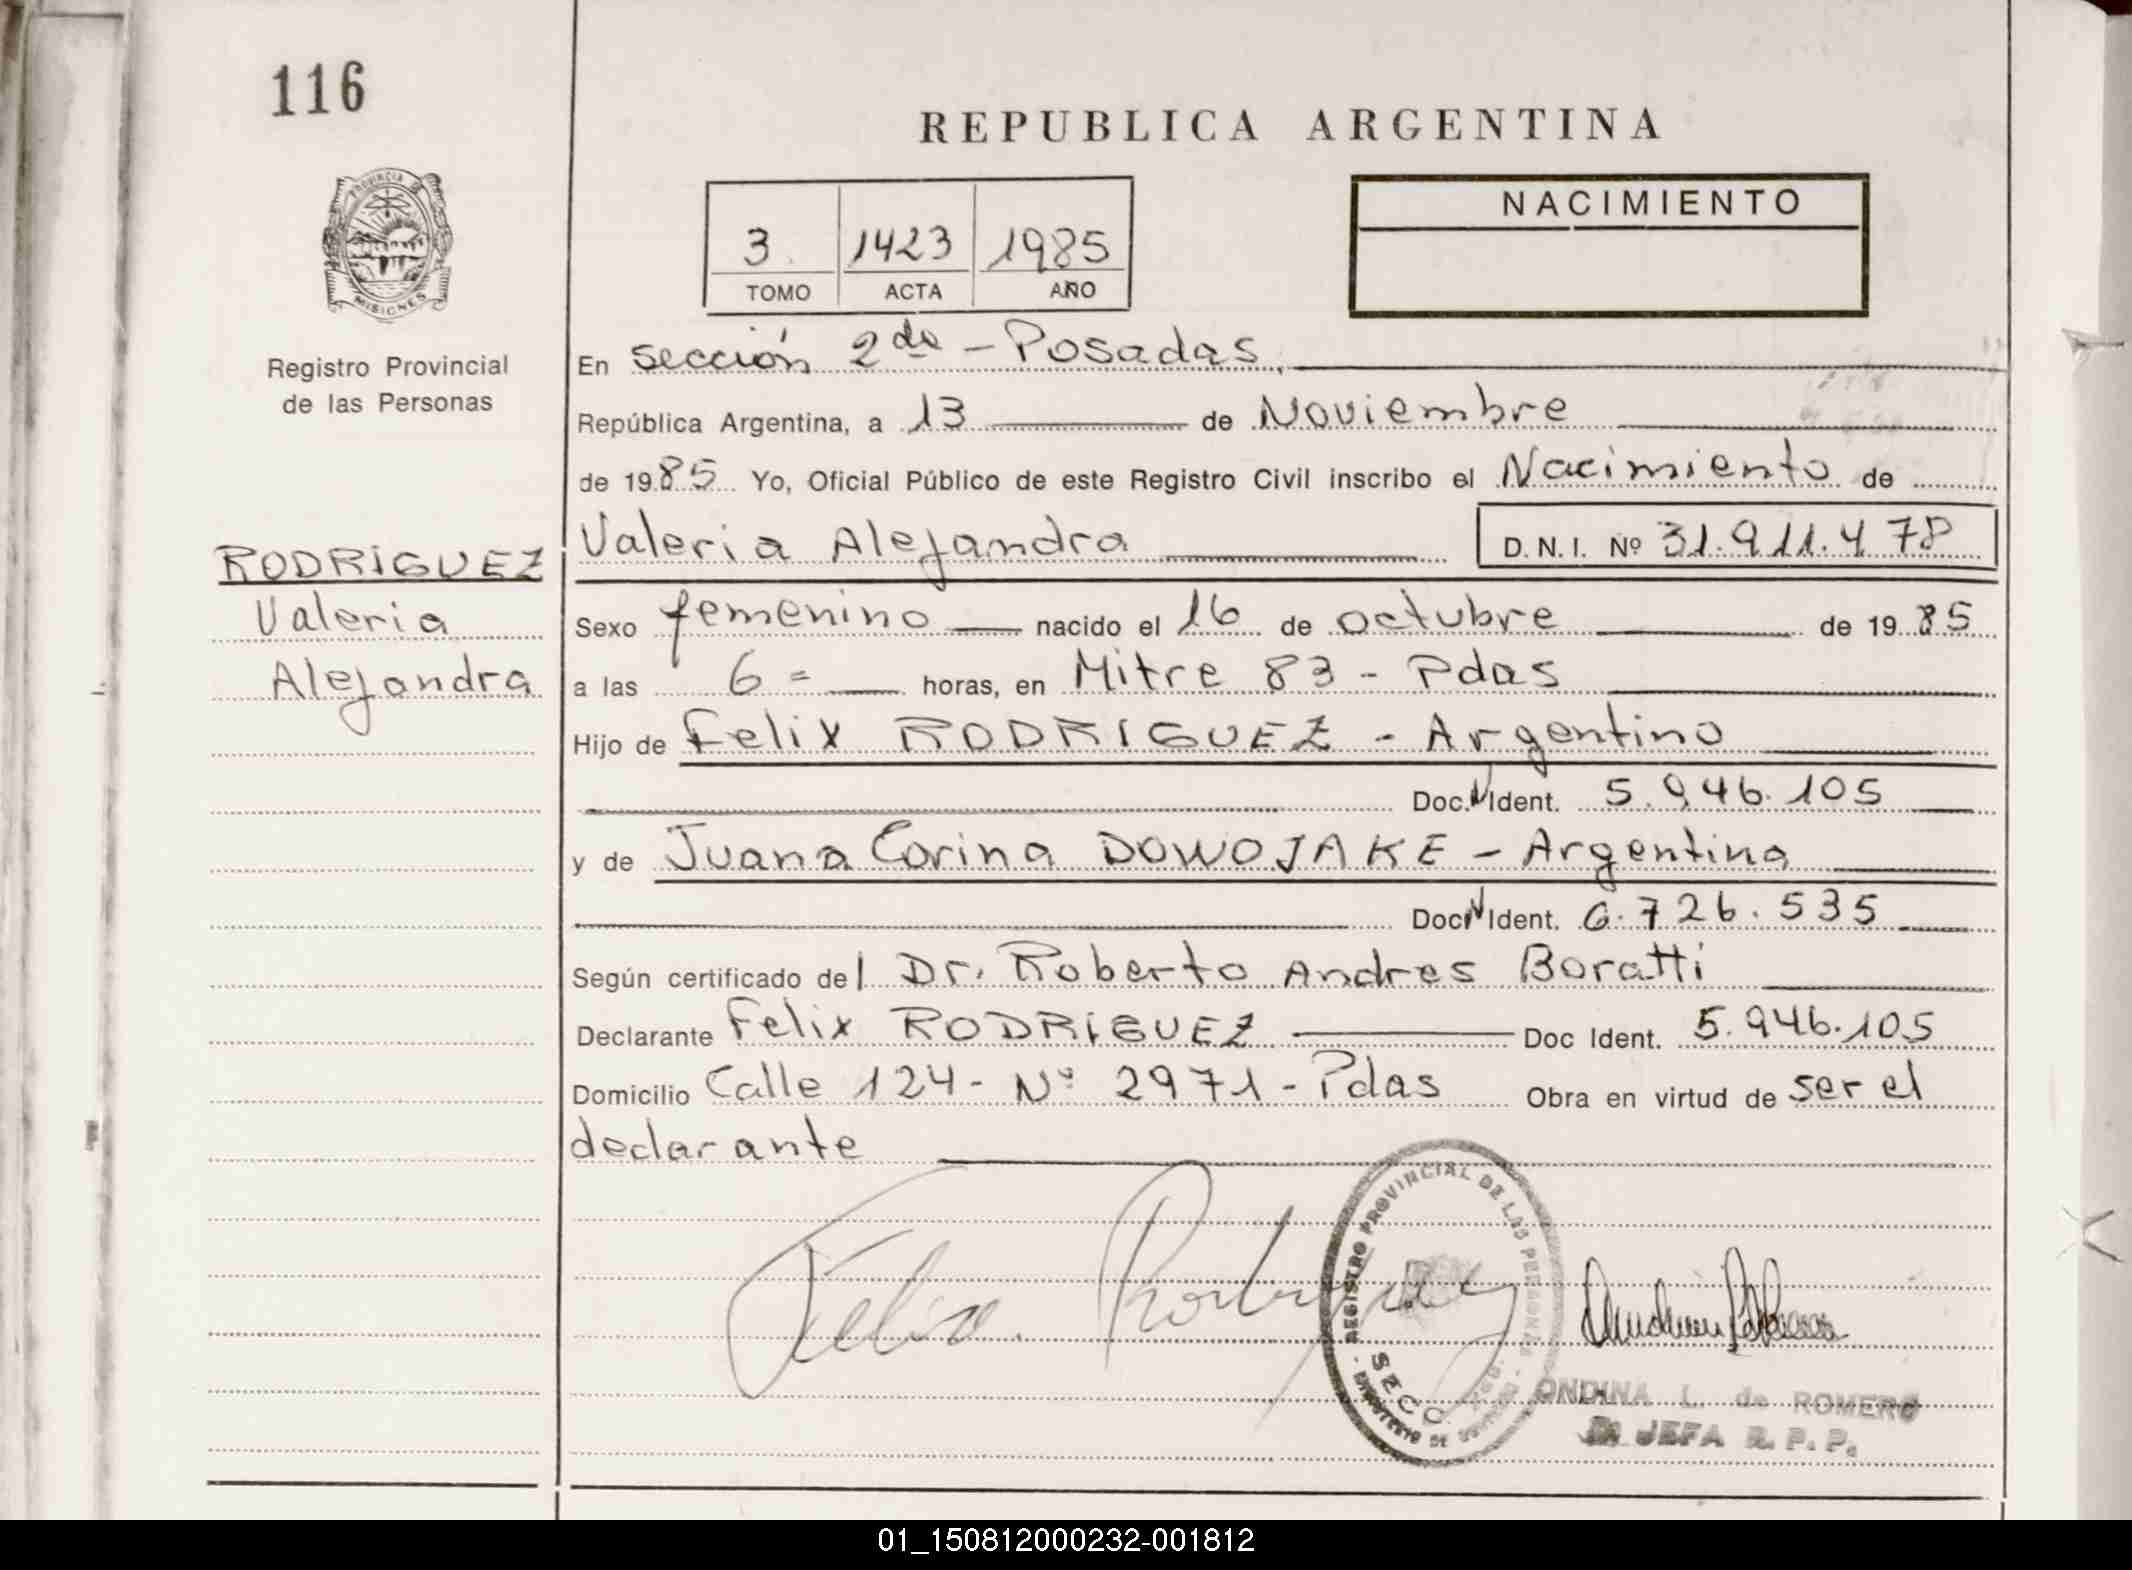 116
REPUBLICA ARGENTINA
PROVINCIA DE
MISIONES
Registro Provincial
de las Personas
3 1423 1985
TOMO ACTA AÑO
NACIMIENTO
En sección 2da - Posadas
República Argentina, a 13 de Noviembre
de 1985 Yo, Oficial Público de este Registro Civil inscribo el Nacimiento de
Valeria Alejandra D.N.I. Nº 31.911.478
RODRIGUEZ
Valeria
Alejandra
Sexo femenino nacido el 16 de octubre de 1985
a las 6= horas, en Mitre 83 - Pdas
Hijo de Felix RODRIGUEZ - Argentino
Doc. N Ident. 5.946.105
y de Juana Corina DOWOJAKE - Argentina
Doc N Ident. 6.726.535
Según certificado del Dr. Roberto Andres Boratti
Declarante Felix RODRIGUEZ Doc Ident. 5.946.105
Domicilio Calle 124 - Nº 2971 - Pdas Obra en virtud de ser el
declarante
Felix Rodriguez
REGISTRO PROVINCIAL DE LAS PERSONAS
SECC
MINISTERIO DE
ONDINA L. de ROMERO
JEFA R.P.P.
01_150812000232-001812